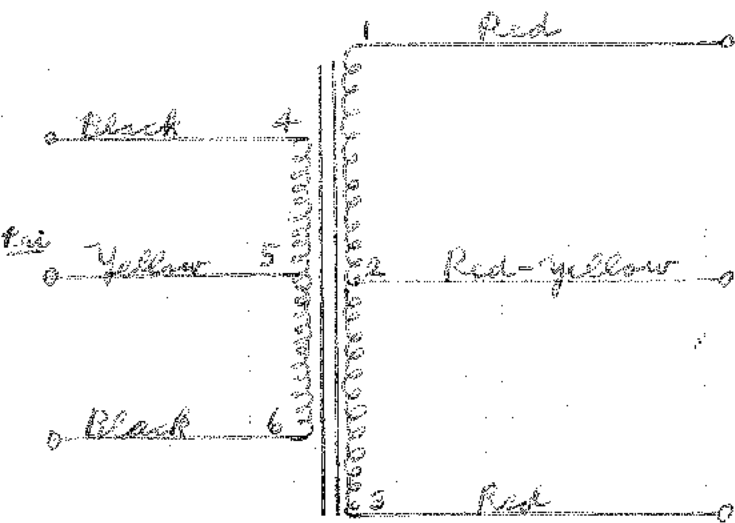 1 Red
Black 4
Pri
Yellow 5
2 Red-Yellow
Black 6
3 Red